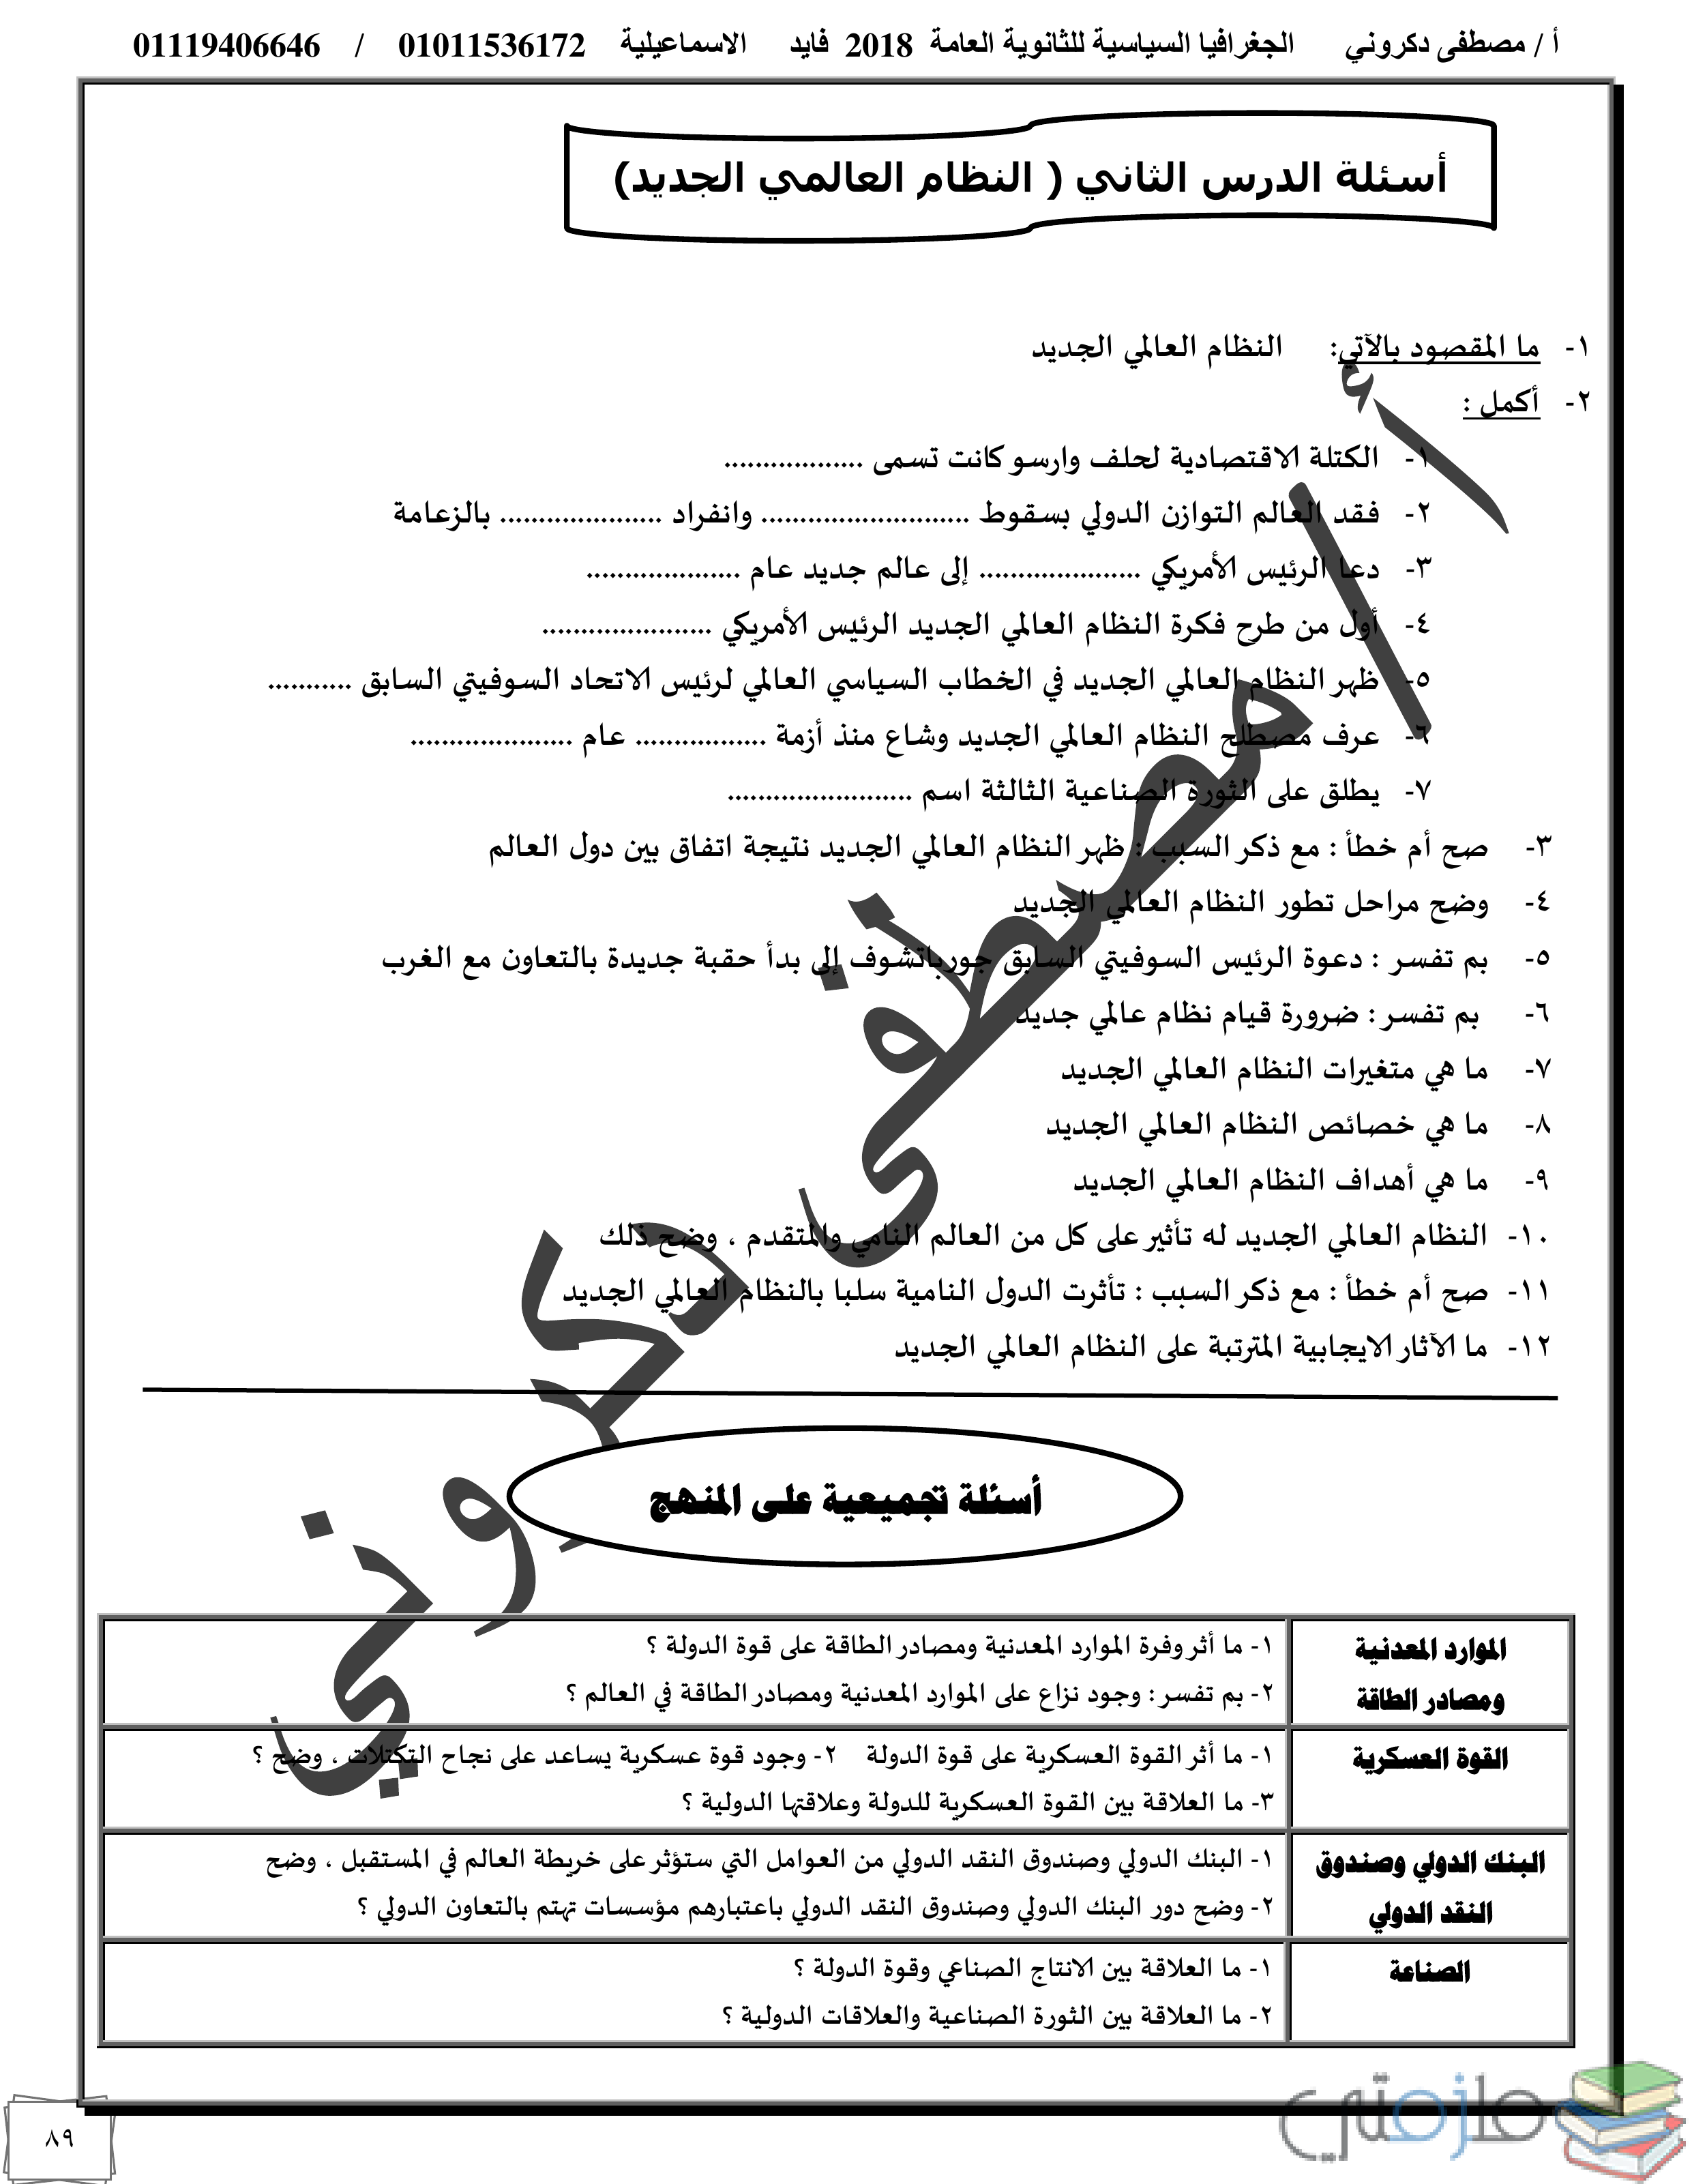 أ / مصطفى دكروني الجغرافيا السياسية للثانوية العامة 2018 فايد الاسماعيلية 01011536172 / 01119406646
أسئلة الدرس الثاني ( النظام العالمي الجديد)
١- ما المقصود بالآتي: النظام العالمي الجديد
٢- أكمل :
١- الكتلة الاقتصادية لحلف وارسو كانت تسمى ..................
٢- فقد العالم التوازن الدولي بسقوط ........................... وانفراد ..................... بالزعامة
٣- دعا الرئيس الأمريكي ..................... إلى عالم جديد عام ....................
٤- أول من طرح فكرة النظام العالمي الجديد الرئيس الأمريكي ......................
٥- ظهر النظام العالمي الجديد في الخطاب السياسي العالمي لرئيس الاتحاد السوفيتي السابق ...........
٦- عرف مصطلح النظام العالمي الجديد وشاع منذ أزمة ................. عام .....................
٧- يطلق على الثورة الصناعية الثالثة اسم ........................
٣- صح أم خطأ : مع ذكر السبب : ظهر النظام العالمي الجديد نتيجة اتفاق بين دول العالم
٤- وضح مراحل تطور النظام العالمي الجديد
٥- بم تفسر : دعوة الرئيس السوفيتي السابق جورباتشوف إلى بدأ حقبة جديدة بالتعاون مع الغرب
٦- بم تفسر : ضرورة قيام نظام عالمي جديد
٧- ما هي متغيرات النظام العالمي الجديد
٨- ما هي خصائص النظام العالمي الجديد
٩- ما هي أهداف النظام العالمي الجديد
١٠- النظام العالمي الجديد له تأثير على كل من العالم النامي والمتقدم ، وضح ذلك
١١- صح أم خطأ : مع ذكر السبب : تأثرت الدول النامية سلبا بالنظام العالمي الجديد
١٢- ما الآثار الايجابية المترتبة على النظام العالمي الجديد
أ / مصطفى دكروني
أسئلة تجميعية على المنهج
الموارد المعدنية
ومصادر الطاقة
١- ما أثر وفرة الموارد المعدنية ومصادر الطاقة على قوة الدولة ؟
٢- بم تفسر : وجود نزاع على الموارد المعدنية ومصادر الطاقة في العالم ؟
القوة العسكرية
١- ما أثر القوة العسكرية على قوة الدولة ٢- وجود قوة عسكرية يساعد على نجاح التكتلات ، وضح ؟
٣- ما العلاقة بين القوة العسكرية للدولة وعلاقتها الدولية ؟
البنك الدولي وصندوق
النقد الدولي
١- البنك الدولي وصندوق النقد الدولي من العوامل التي ستؤثر على خريطة العالم في المستقبل ، وضح
٢- وضح دور البنك الدولي وصندوق النقد الدولي باعتبارهم مؤسسات تهتم بالتعاون الدولي ؟
الصناعة
١- ما العلاقة بين الانتاج الصناعي وقوة الدولة ؟
٢- ما العلاقة بين الثورة الصناعية والعلاقات الدولية ؟
ملزمتي
٨٩